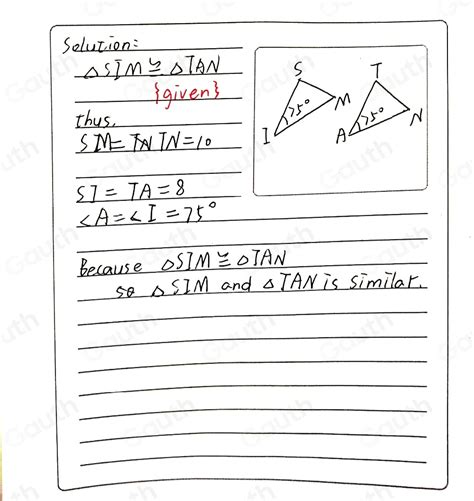 Solution:
△SIM ≅ △TAN
{given}
thus,
SM= TN=10
SI = TA = 8
<A = <I = 75°
Because △SIM ≅ △TAN
so △SIM and △TAN is similar.
S
M
I
75°
T
N
A
75°
Gauth